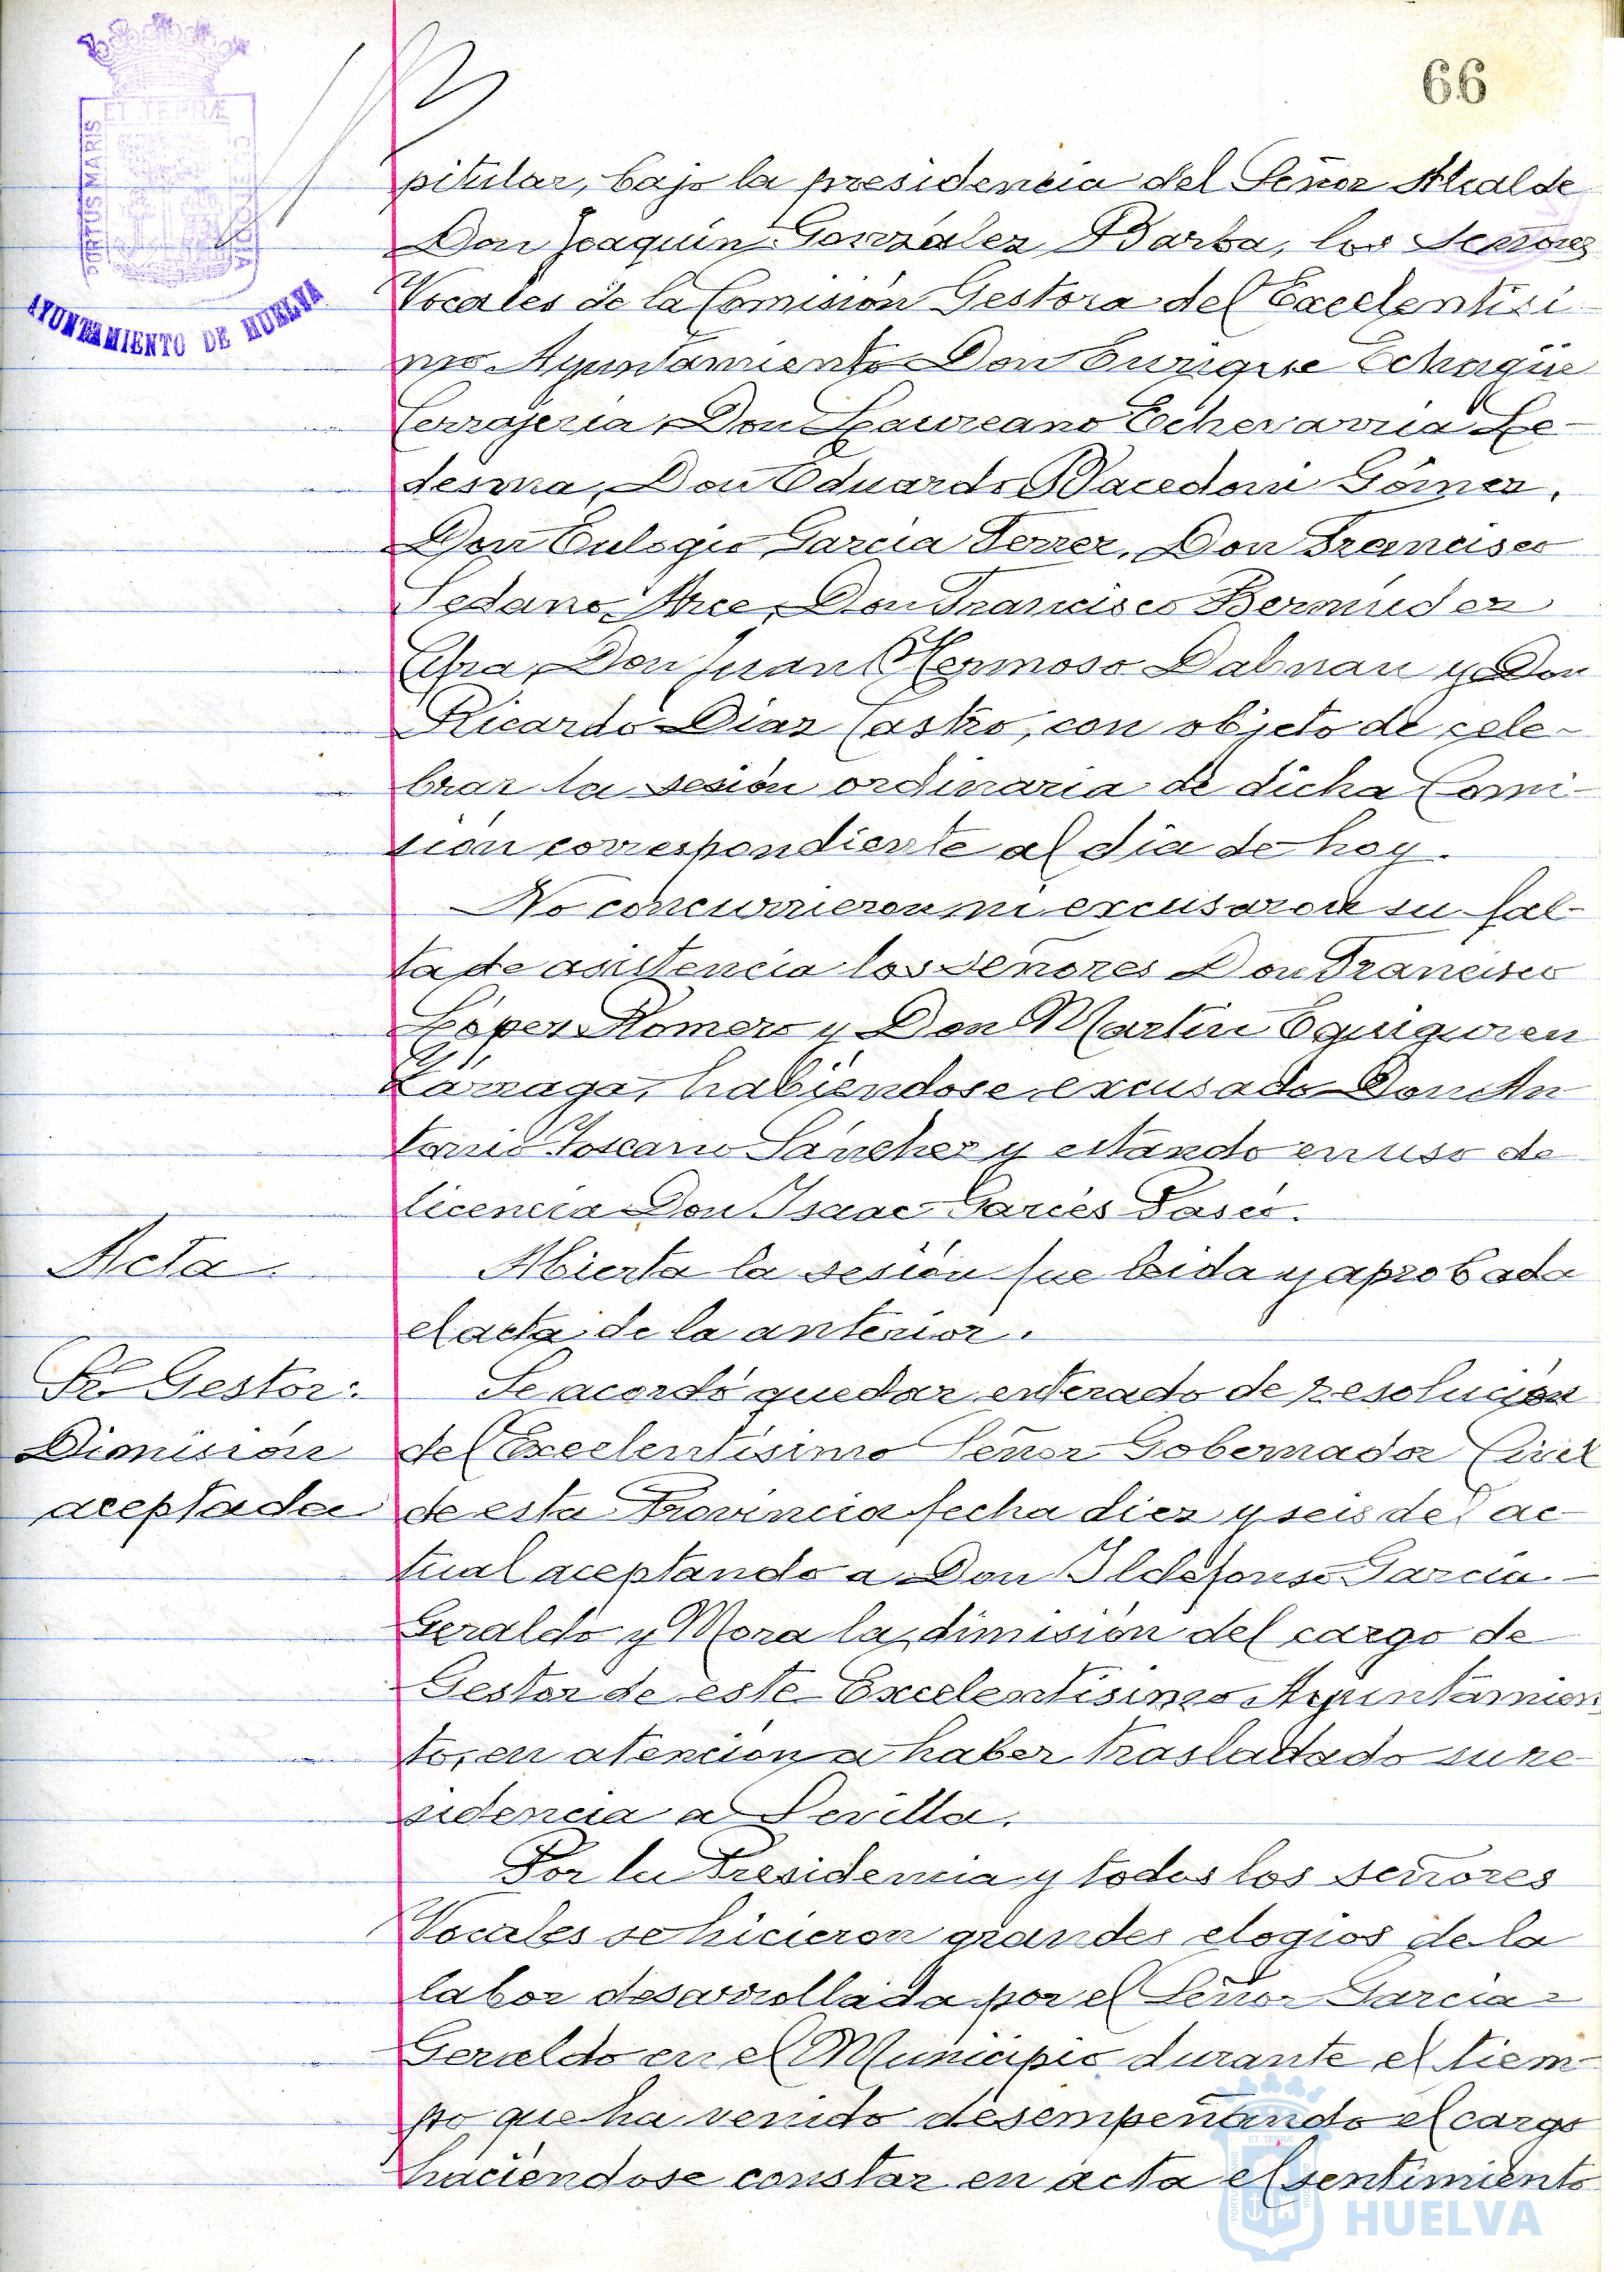 66
ET TERRÆ
PORTUS MARIS
AYUNTAMIENTO DE HUELVA
pitular, bajo la presidencia del Señor Alcalde
Don Joaquín González Barba, los Señores
Vocales de la Comisión Gestora del Excelentísi-
mo Ayuntamiento Don Enrique Echagüe
Cerrajería, Don Laureano Echevarría Le-
desma, Don Eduardo Macedoni Gómez,
Don Eulogio García Ferrer, Don Francisco
Sedano Arce, Don Francisco Bermúdez
Don Juan Hermoso Dalnau y Don
Ricardo Díaz Castro, con objeto de cele-
brar la sesión ordinaria de dicha Comi-
sión correspondiente al día de hoy.
No concurrieron ni excusaron su fal-
ta de asistencia los Señores Don Francisco
López Romero y Don Martín Eguiguren
habiendose excusado Don An
tonio Toscano Sánchez y estando en uso de
licencia Don Isaac Garcés
Acta.
Abierta la sesión fue leida y aprobada
el acta de la anterior.
Sr. Gestor:
Dimisión
aceptada
Se acordó quedar enterado de resolución
del Excelentísimo Señor Gobernador Civil
de esta Provincia fecha diez y seis del ac-
tual aceptando a Don Ildefonso García-
Geraldo y Mora la dimisión del cargo de
Gestor de este Excelentísimo Ayuntamien
to, en atención a haber trasladado su re-
sidencia a Sevilla.
Por la Presidencia y todos los señores
Vocales se hicieron grandes elogios de la
labor desarrollada por el Señor García-
Geraldo en el Municipio durante el tiem-
po que ha venido desempeñando el cargo
haciendose constar en acta el sentimiento
HUELVA